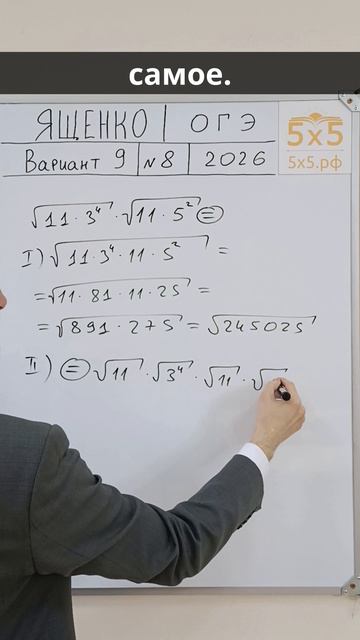 самое.
ЯЩЕНКО | ОГЭ
5х5
Вариант 9 | №8 | 2026
5х5.рф
√11·3⁴ · √11·5² =
I) √11·3⁴·11·5² =
= √11·81·11·25 =
= √891·275 = √245025
II) = √11 · √3⁴ · √11 · √